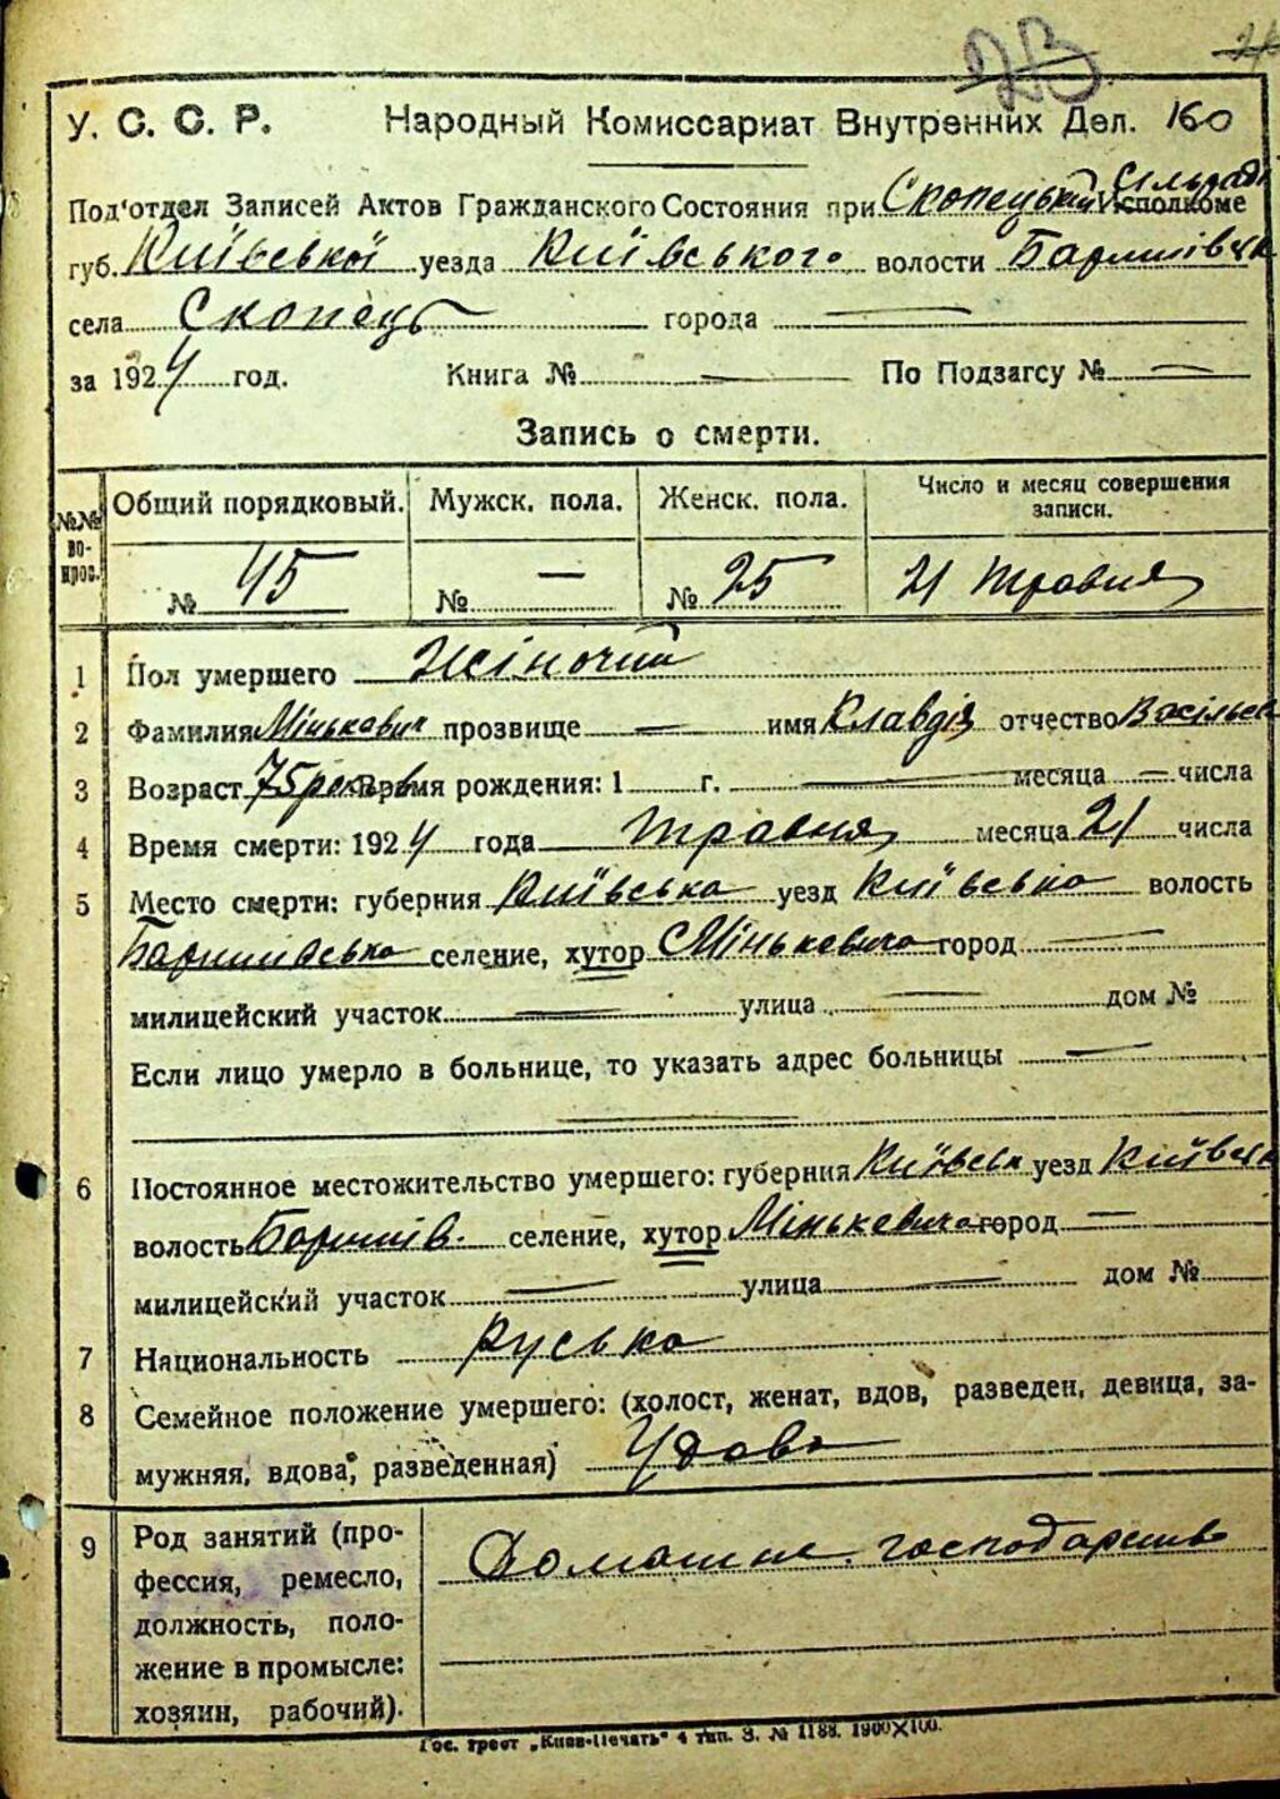 23
У. С. С. Р. Народный Комиссариат Внутренних Дел. 160
Под'отдел Записей Актов Гражданского Состояния при Скопецькій Сільраді Исполкоме
губ. Київської уезда Київського волости Баришівськ
села Скопець города —
за 1924 год. Книга № — По Подзагсу № —
Запись о смерти.
№№ вопрос. Общий порядковый. Мужск. пола. Женск. пола. Число и месяц совершения записи.
№ 45 № — № 25 21 Травня
1 Пол умершего Жіночий
2 Фамилия Мінькевич прозвище — имя Клавдія отчество Васільев
3 Возраст 75 років Время рождения: 1 г. — месяца — числа
4 Время смерти: 1924 года Травня месяца 21 числа
5 Место смерти: губерния Київська уезд Київська волость
Баришівська селение, хутор Мінькевича город —
милицейский участок — улица — дом №
Если лицо умерло в больнице, то указать адрес больницы —
6 Постоянное местожительство умершего: губерния Київськ уезд Київськ
волость Баришів. селение, хутор Мінькевича город —
милицейский участок — улица — дом №
7 Национальность Руська
8 Семейное положение умершего: (холост, женат, вдов, разведен, девица, за-
мужняя, вдова, разведенная) Удова
9 Род занятий (про- Домашнє господарство
фессия, ремесло,
должность, поло-
жение в промысле:
хозяин, рабочий).
Гос. трест „Киев-Печать" 4 тип. З. № 1188. 1900Х100.